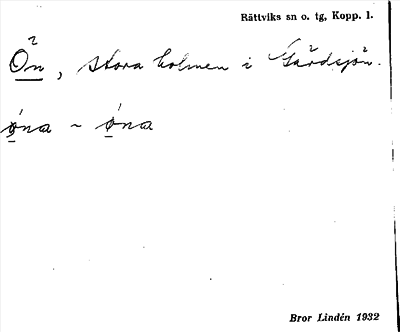 Rättviks sn o. tg, Kopp. l.
Ön, stora holmen i Gärdsjön.
øna ~ øna
Bror Lindén 1932